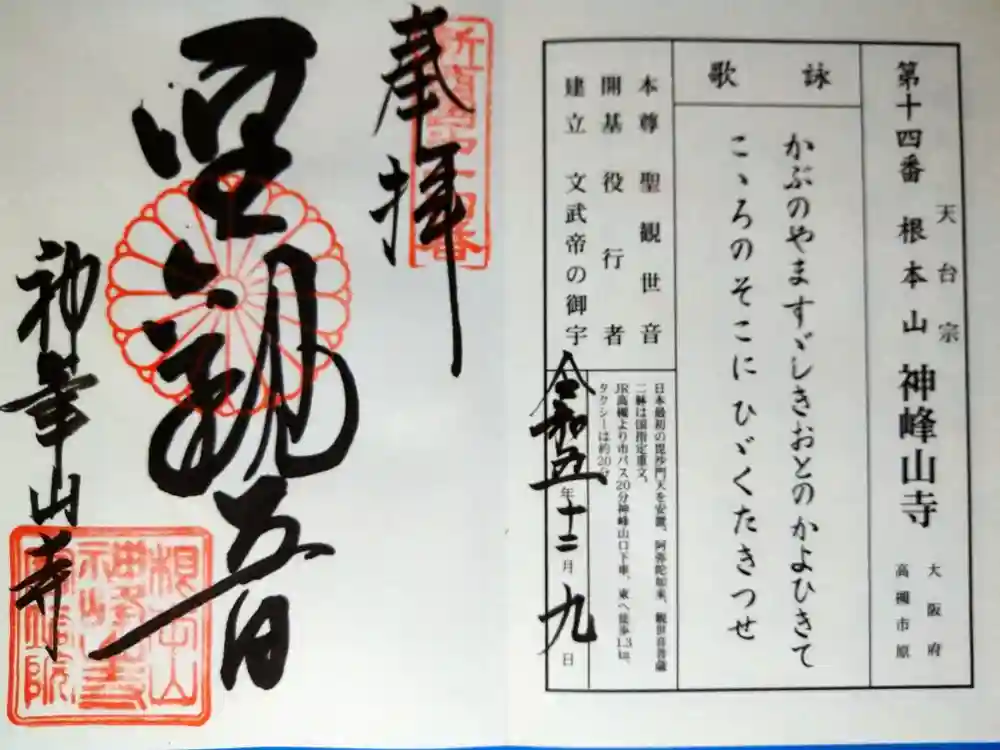 第十四番 根本山 神峰山寺
天台宗
大阪府
高槻市原
詠歌
かぶのやますゞしきおとのかよひきて
こゝろのそこにひゞくたきつせ
本尊 聖観世音
開基 役行者
建立 文武帝の御宇
日本最初の毘沙門天を安置。阿弥陀如来、観世音菩薩
二躰は国指定重文。
JR高槻より市バス20分神峰山口下車、東へ徒歩1.3km、
タクシーは約20分
令和五年十二月九日
奉拝
新西国十四番
聖観音
神峯山寺
根本山
神峯山寺